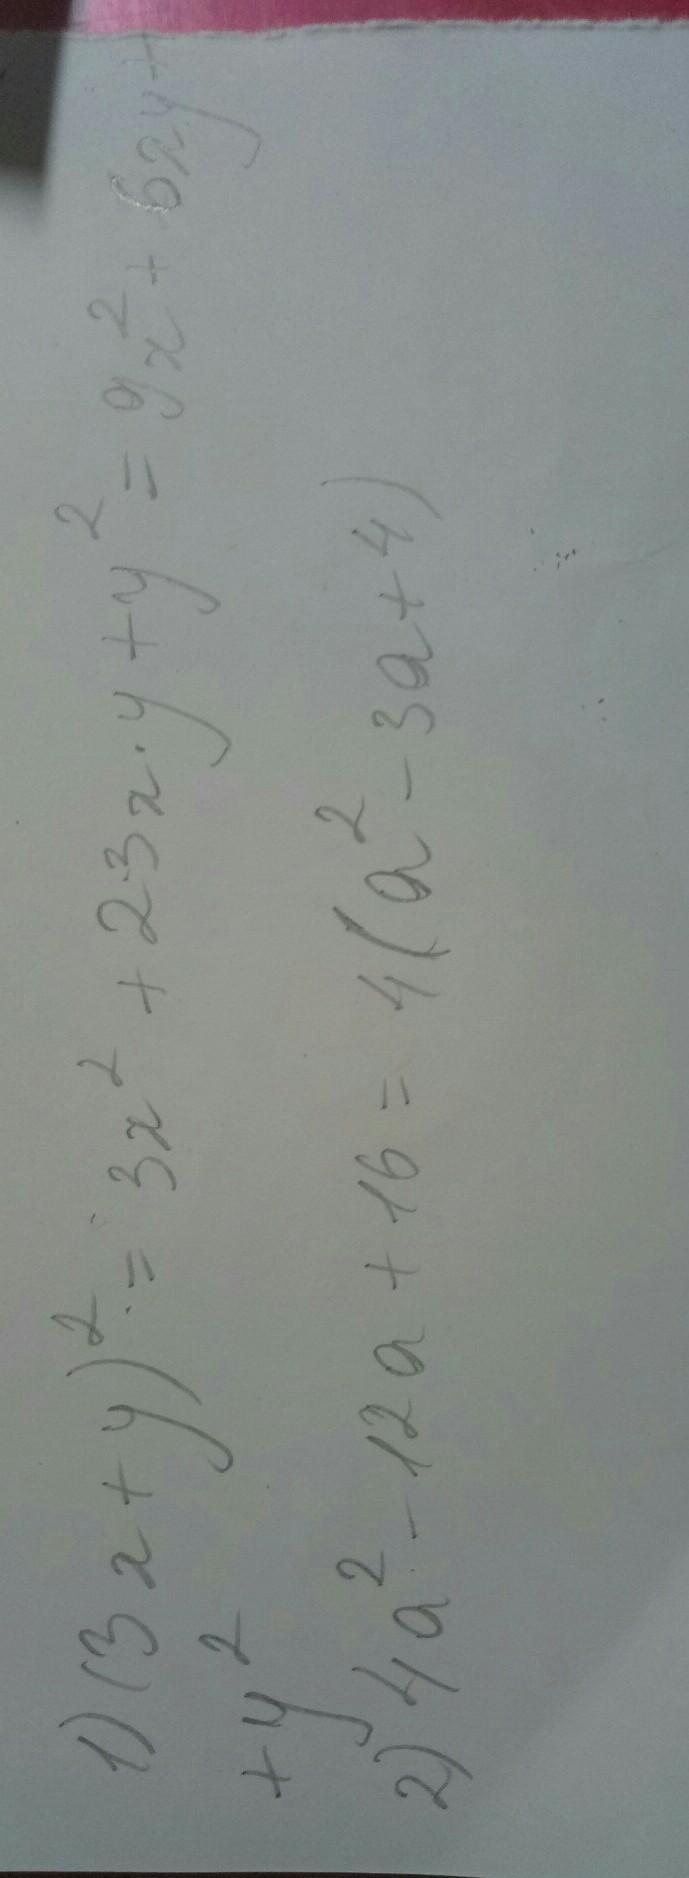 1) (3x+y)² = 3x² + 2·3x·y + y² = 9x² + 6xy +
+ y²
2) 4a² - 12a + 16 = 4(a² - 3a + 4)